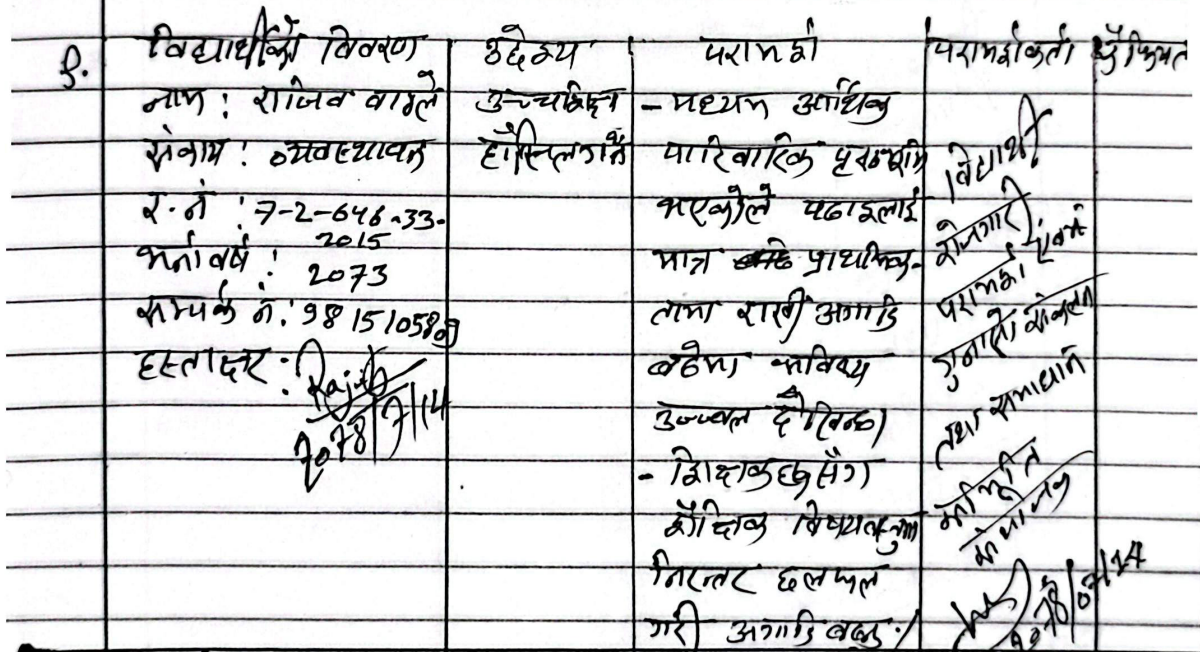 १.
विद्यार्थीको विवरण
नाम : राजिव वाग्ले
संकाय : व्यवस्थापन
र.नं : 7-2-646-33-
2015
भर्ना वर्ष : 2073
सम्पर्क नं : 9815105809
हस्ताक्षर : Rajib
2078/7/14
उद्देश्य
उच्चशिक्षा
परामर्श
- मध्यम आर्थिक
पारिवारिक पृष्ठभूमि
भएकोले पढाइलाई
मात्र प्राथमिक-
तामा राखी अगाडि
बढेमा भविष्य
उज्ज्वल देखिन्छ।
- शिक्षकहरु सँग
शैक्षिक विषयवस्तुमा
निरन्तर छलफल
गरी अगाडि बढ्नु।
परामर्शकर्ता
विद्यार्थी
रोजगारी
परामर्श एवम
गुनासो संकलन
तथा समाधान
समिति
संयोजक
2078/07/14
कैफियत